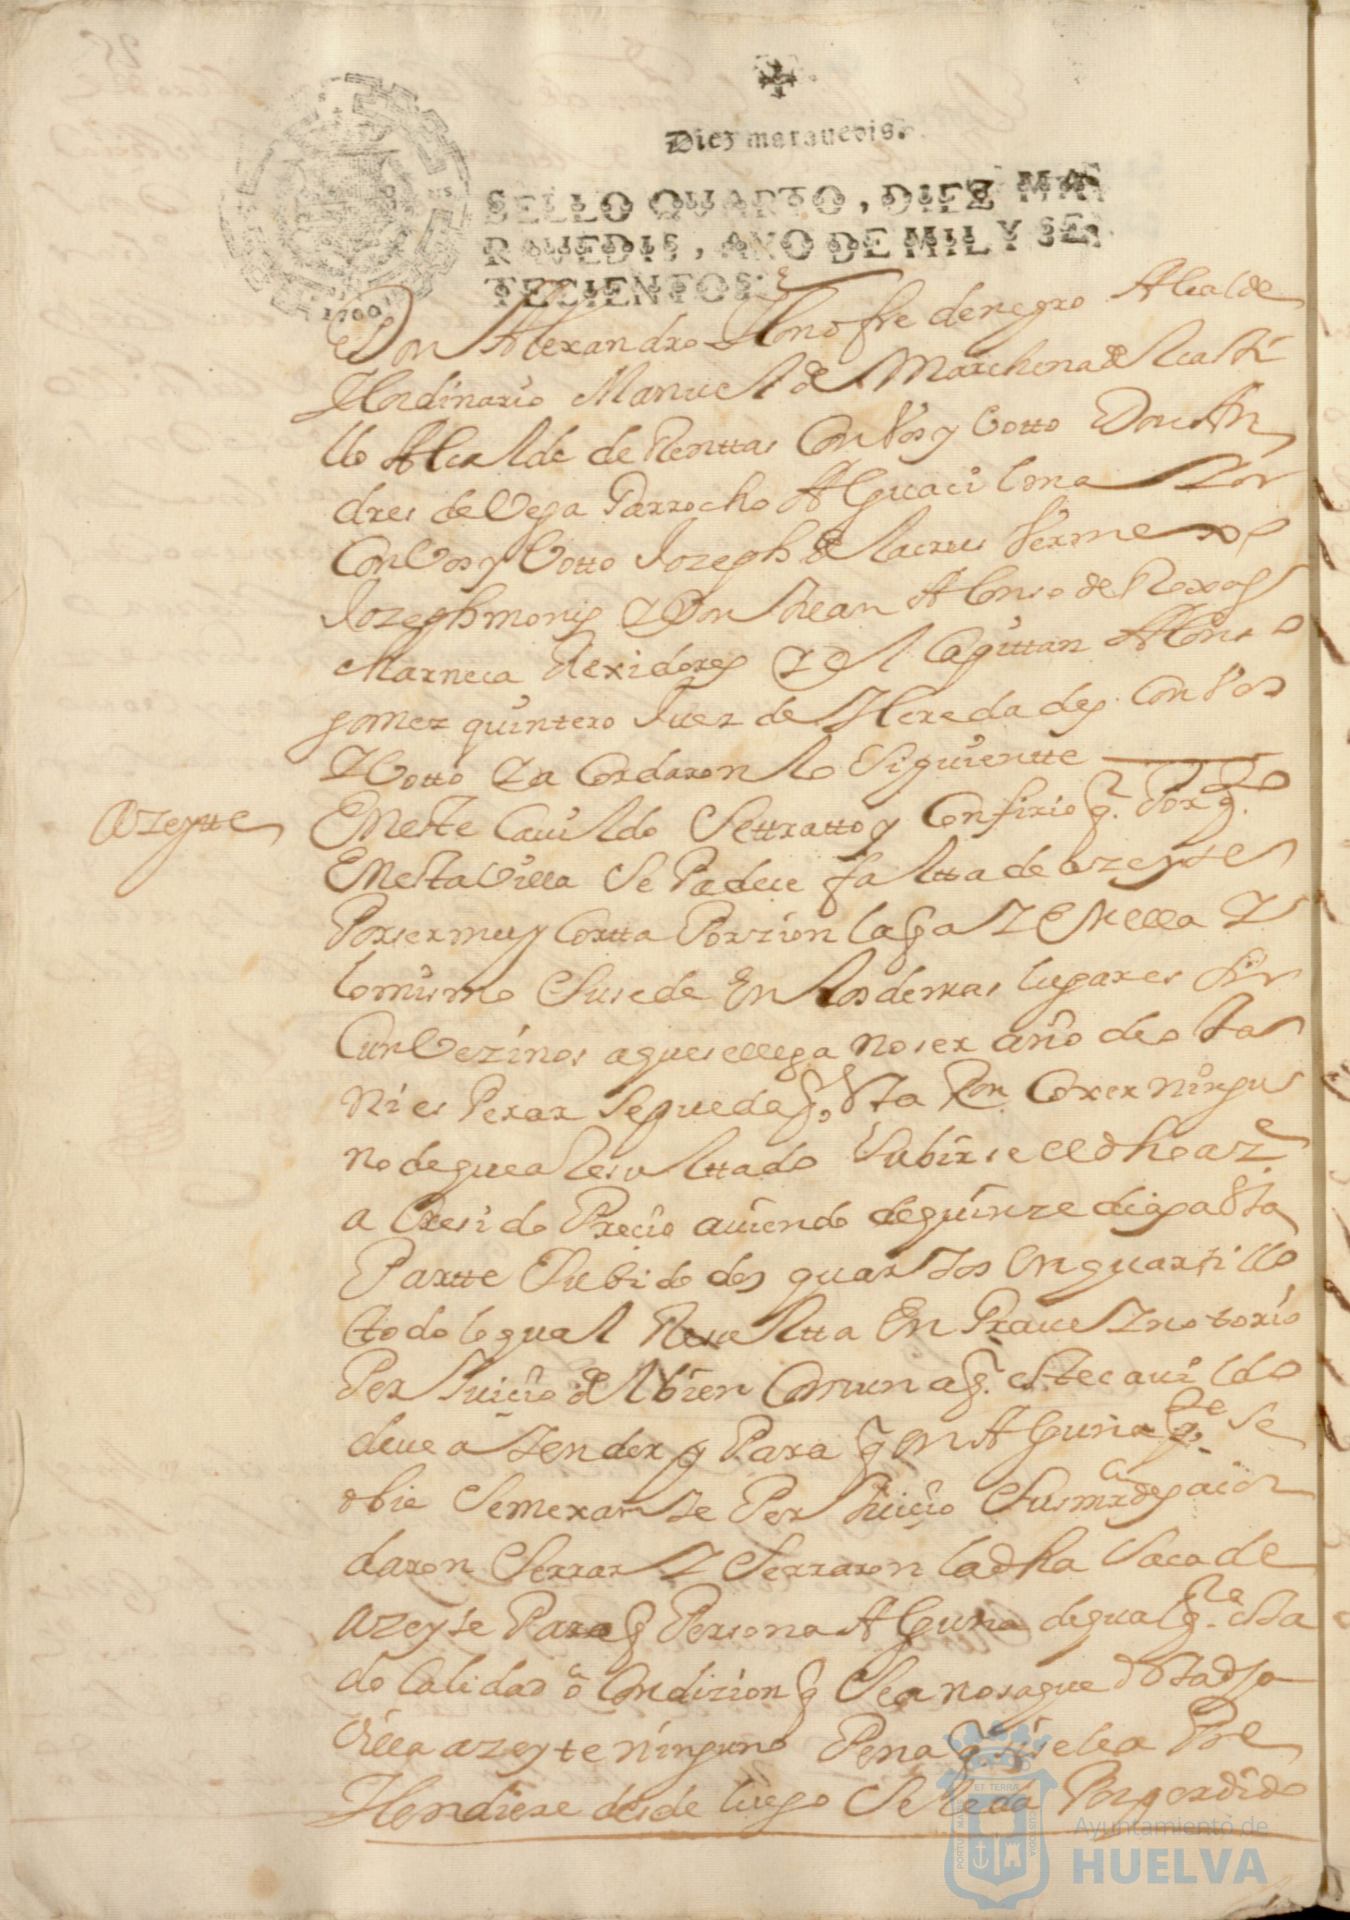 Diez marauedis.
SELLO QVARTO, DIEZ MA
RAVEDIS, AÑO DE MIL Y SE
TECIENTOS
1700
Don Alexandro Honofre de negro Alcalde
Hordinario Manuel de Marchena del Casti
llo Alcalde de Renttas Con Vos y Votto Don An
dres de Vega Parrocho Alguacil maior
Con Vos y Votto Jozeph de la crus Vermexo
Jozeph moris y Don Juan Alonso de Roxas
Marneca Rexidores y el Capittan Alonso
gomez quintero Juez de Heredades Con Vos
y Votto y a Cordaron lo Siguientte
Azeytte
En este Cauildo Se ttratto y Confirio q. Por q.to
En esta Villa Se Padece faltta de azeyte
Por ser muy Cortta Porzion la q ai En ella y
lo mismo Susede En los demas lugares Sir
Cunvezinos a que se llega no ser año de ota
ni esperar se pueda q. Vta Pon Coxer ningu
no de que a Resulttado Subirse el dho aze
a Cresido Precio auiendo de quinze dias a Vta
Partte Subido dos quartos En quartillo
todo lo qual Resultta En Graue y notorio
Perjuicio del bien Comun a q. este cauildo
deue a tender y Para q en Alguna q.te se
obie Semexante Perjuicio Sus mrdes acor
daron Serrar y Serraron la dha Saca de
azeyte Para q Persona Alguna de qualq.ra esta
do Calidad o Condizion q Sea no saque de Vta dha
Villa azeyte ninguno Pena q si se lea Pre
Hendiere desde luego Se le da Por perdido
PORTUS MARIS ET TERRAE CUSTODIA
Ayuntamiento de
HUELVA